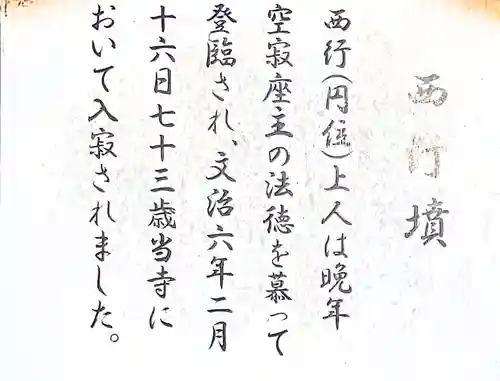 西行墳
西行(円位)上人は晩年
空寂座主の法徳を慕って
登臨され、文治六年二月
十六日七十三歳当寺に
おいて入寂されました。